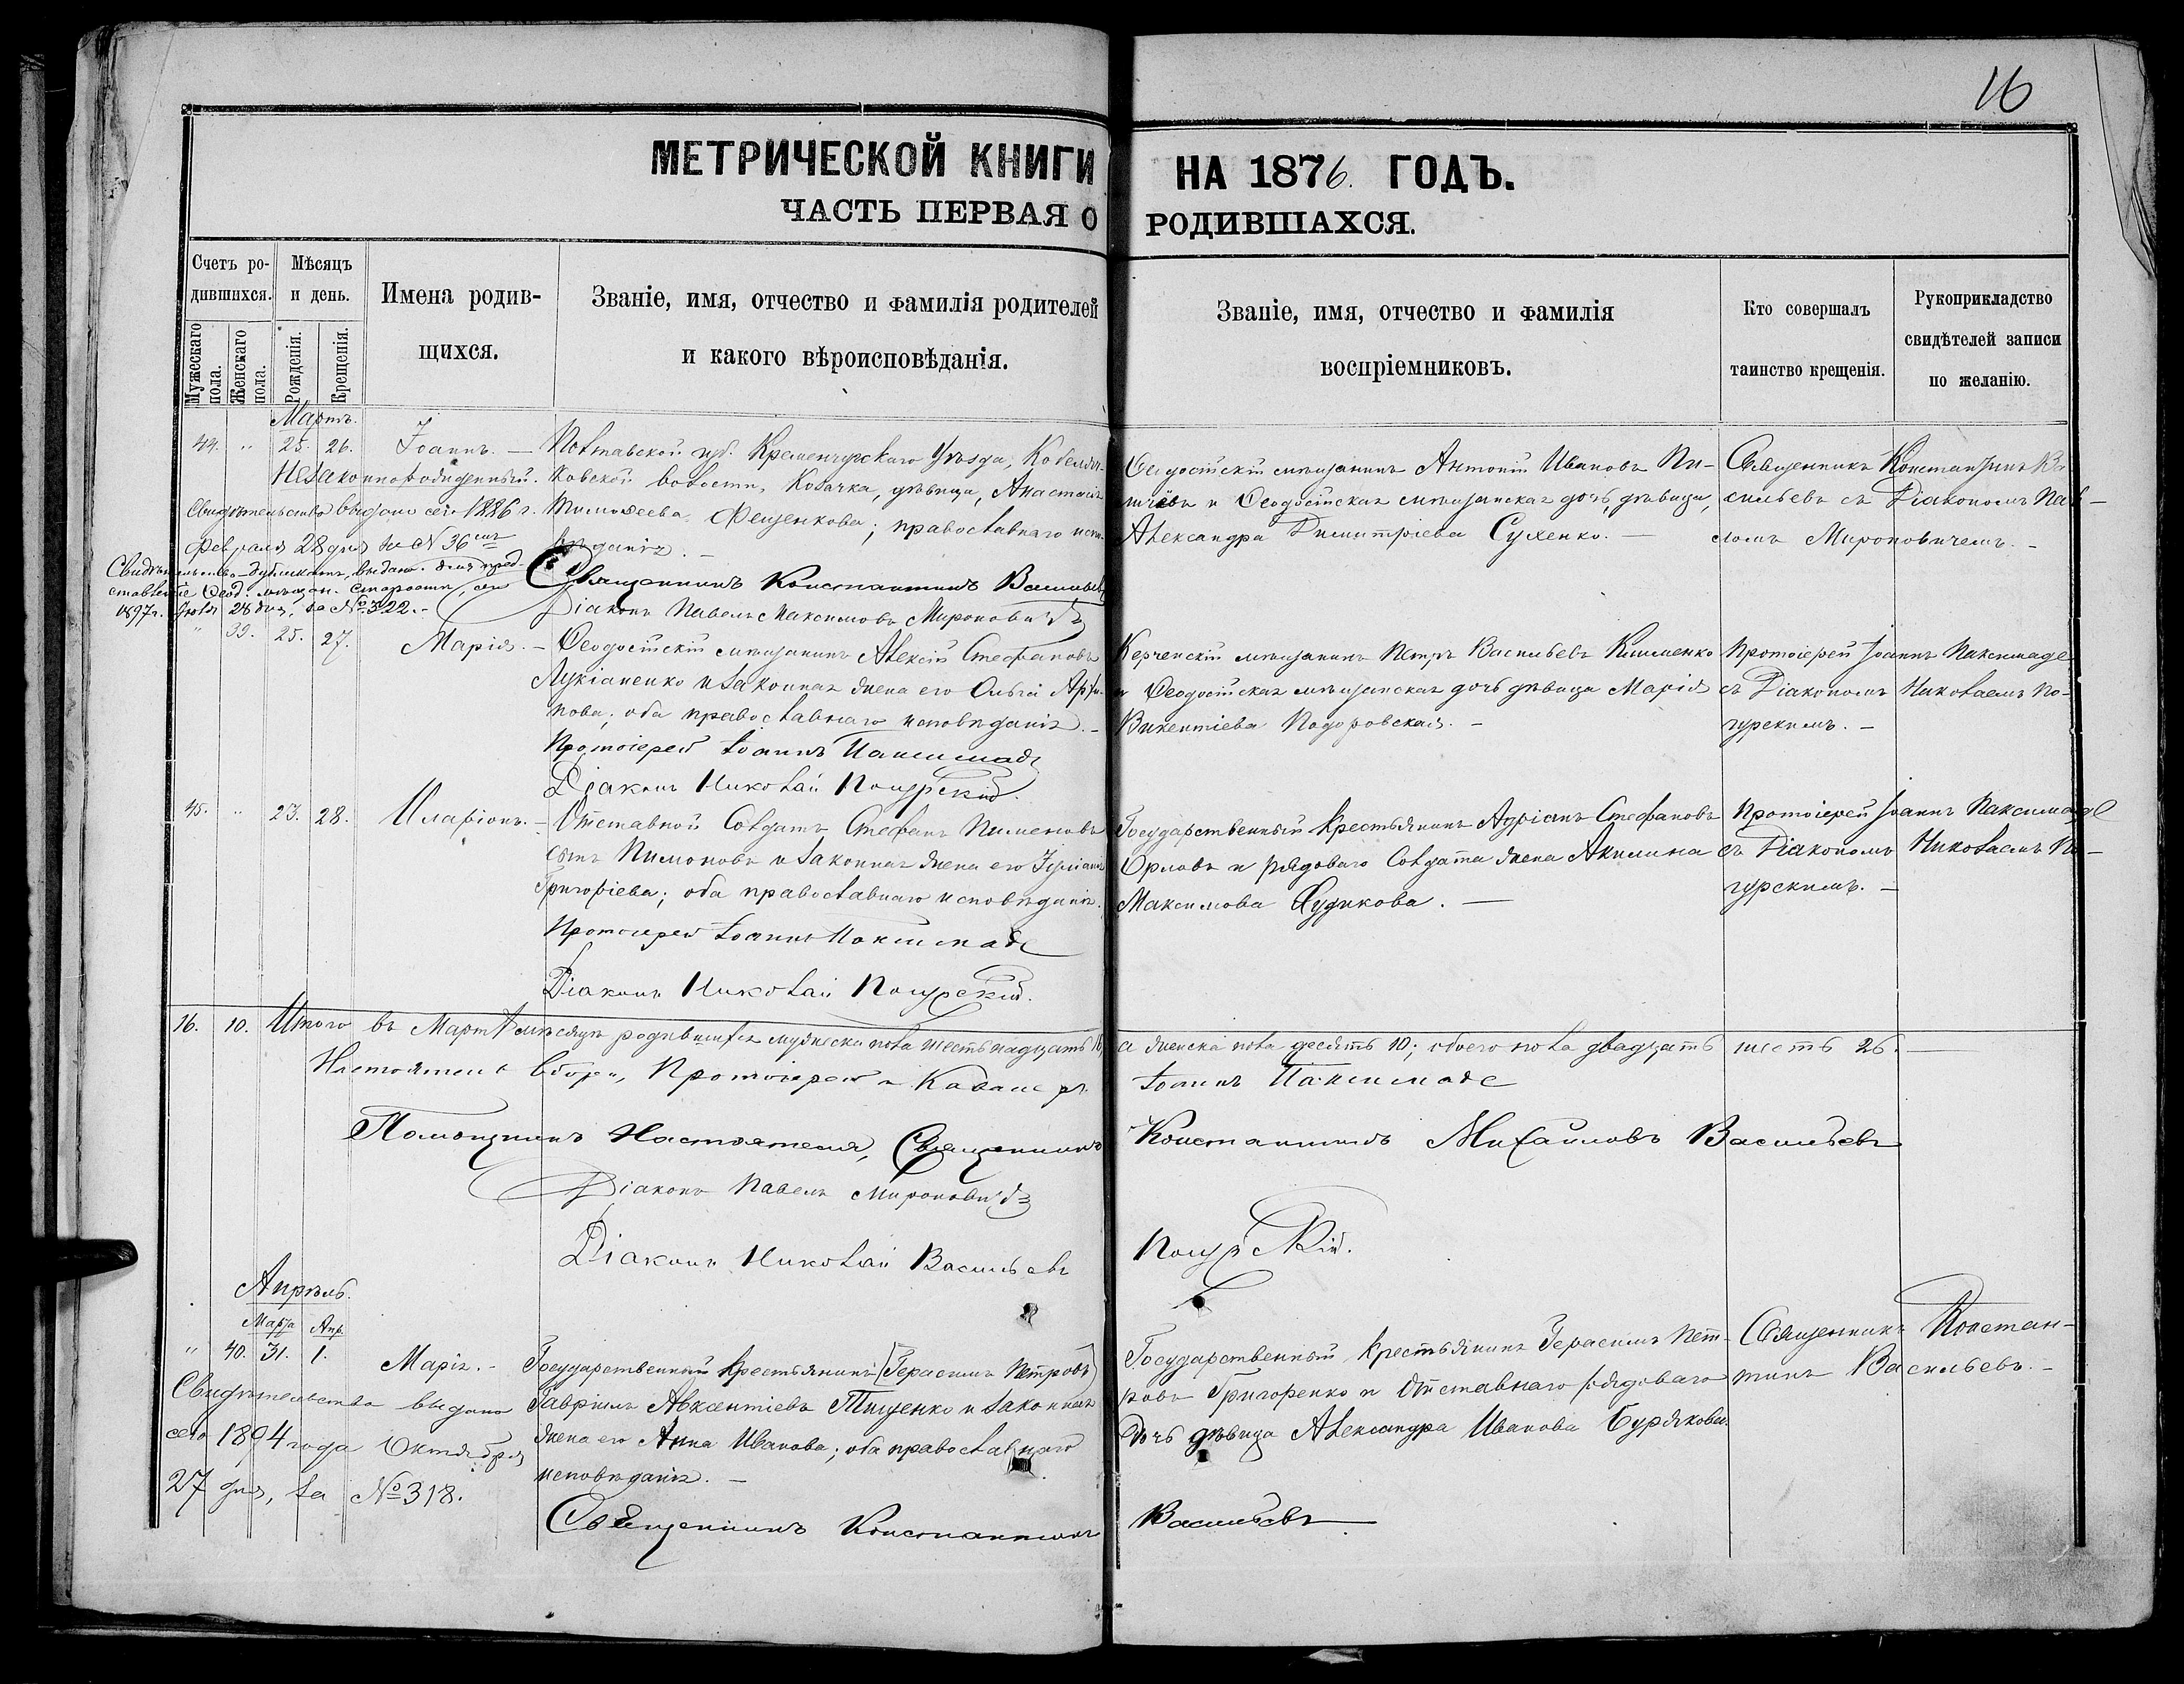 16
МЕТРИЧЕСКОЙ КНИГИ НА 1876. ГОДЪ.
ЧАСТЬ ПЕРВАЯ О РОДИВШАХСЯ.
Счетъ ро-
дившихся.
Мужескаго пола.
Женскаго пола.
Мѣсяцъ
и день.
Рожденія.
Крещенія.
Имена родив-
щихся.
Званіе, имя, отчество и фамилія родителей
и какого вѣроисповѣданія.
Званіе, имя, отчество и фамилія
воспріемниковъ.
Кто совершалъ
таинство крещенія.
Рукоприкладство
свидѣтелей записи
по желанію.
Мартъ.
44. " 25. 26. Іоаннъ. —
Незаконнорожденный.
Свидѣтельство выдано сего 1886 г.
Февраля 28 дня за № 36
Свидѣтельство-дубликатъ, выдано для пред-
ставленія Ѳеод. мѣщан. старостѣ,
1897 г. Іюля 28 дня, за № 322. -
Полтавской губ. Кременчугскаго Уѣзда,
волости, Козачка, дѣвица, Анастасія
Тимоѳеева Фещенкова; православнаго испо-
вѣданія. —
Священникъ Константинъ Васильевъ
Діаконъ Павелъ Максимовъ Мироновичъ
Ѳеодосійскій мѣщанинъ Антоній Ивановъ
и Ѳеодосійская мѣщанская дочь, дѣвица,
Александра Димитріева Сухенко. —
Священникъ Константинъ Ва-
сильевъ съ Діакономъ Пав-
ломъ Мироновичемъ. -
" 39. 25. 27. Марія. -
Ѳеодосійскій мѣщанинъ Алексій Стефановъ
Лукіаненко и законная жена его Ольга
оба православнаго исповѣданія. -
Протоіерей Іоаннъ Паксимаде
Діаконъ Николай Погурскій.
Керченскій мѣщанинъ Петръ Васильевъ Клименко
и Ѳеодосійская мѣщанская дочь дѣвица Марія
Викентіева Подоровская. -
Протоіерей Іоаннъ Паксимаде
съ Діакономъ Николаемъ По-
гурскимъ. -
45. " 23. 28. Иларіонъ. -
Отставной Солдатъ Стефанъ Пименовъ
сынъ Пимоновъ и законная жена его Іуліанія
Григоріева; оба православнаго исповѣданія.
Протоіерей Іоаннъ Паксимаде
Діаконъ Николай Погурскій.
Государственный Крестьянинъ Адріанъ Стефановъ
Орловъ и рядоваго Солдата жена Акилина
Максимова Судикова. —
Протоіерей Іоаннъ Паксимаде
съ Діакономъ Николаемъ По-
гурскимъ. -
16. 10. Итого въ Мартѣ мѣсяцѣ родившихся мужеска пола шестьнадцать 16, а женска пола десять 10; обоего пола двадцать шесть 26. —
Настоятель Собора, Протоіерей и Кавалеръ Іоаннъ Паксимаде
Помощникъ Настоятеля, Священникъ Константинъ Михаиловъ Васильевъ
Діаконъ Павелъ Мироновичъ
Діаконъ Николай Васильевъ Погурскій.
Апрѣль.
Марта Апр.
" 40. 31. 1. Марія. -
Свидѣтельство выдано
сего 1894 года Октября
27 дня, за № 318.
Государственный Крестьянинъ [Герасимъ Петровъ]
Гавріилъ Авксентіевъ Тищенко и законная
жена его Анна Иванова; оба православнаго
исповѣданія. —
Священникъ Константинъ Васильевъ
Государственный Крестьянинъ Герасимъ Пет-
ровъ Григоренко и Отставнаго рядоваго
дочь дѣвица Александра Иванова Бурякова.
Священникъ Констан-
тинъ Васильевъ. -